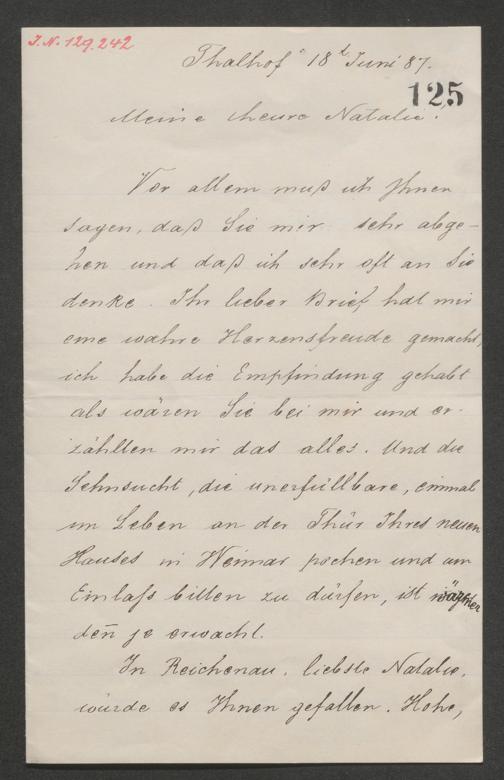 J.N. 129.242
Thalhof 18t Juni 87.
125
Meine theure Natalie!
Vor allem muß ich Ihnen
sagen, daß Sie mir sehr abge-
hen und daß ich sehr oft an Sie
denke. Ihr lieber Brief hat mir
eine wahre Herzensfreude gemacht,
ich habe die Empfindung gehabt
als wären Sie bei mir und er-
zählten mir das alles. Und die
Sehnsucht, die unerfüllbare, einmal
im Leben an der Thür Ihres neuen
Hauses in Weimar pochen und um
Einlaß bitten zu dürfen, ist
den̄ je erwacht.
In Reichenau, liebste Natalie,
würde es Ihnen gefallen. Hohe,